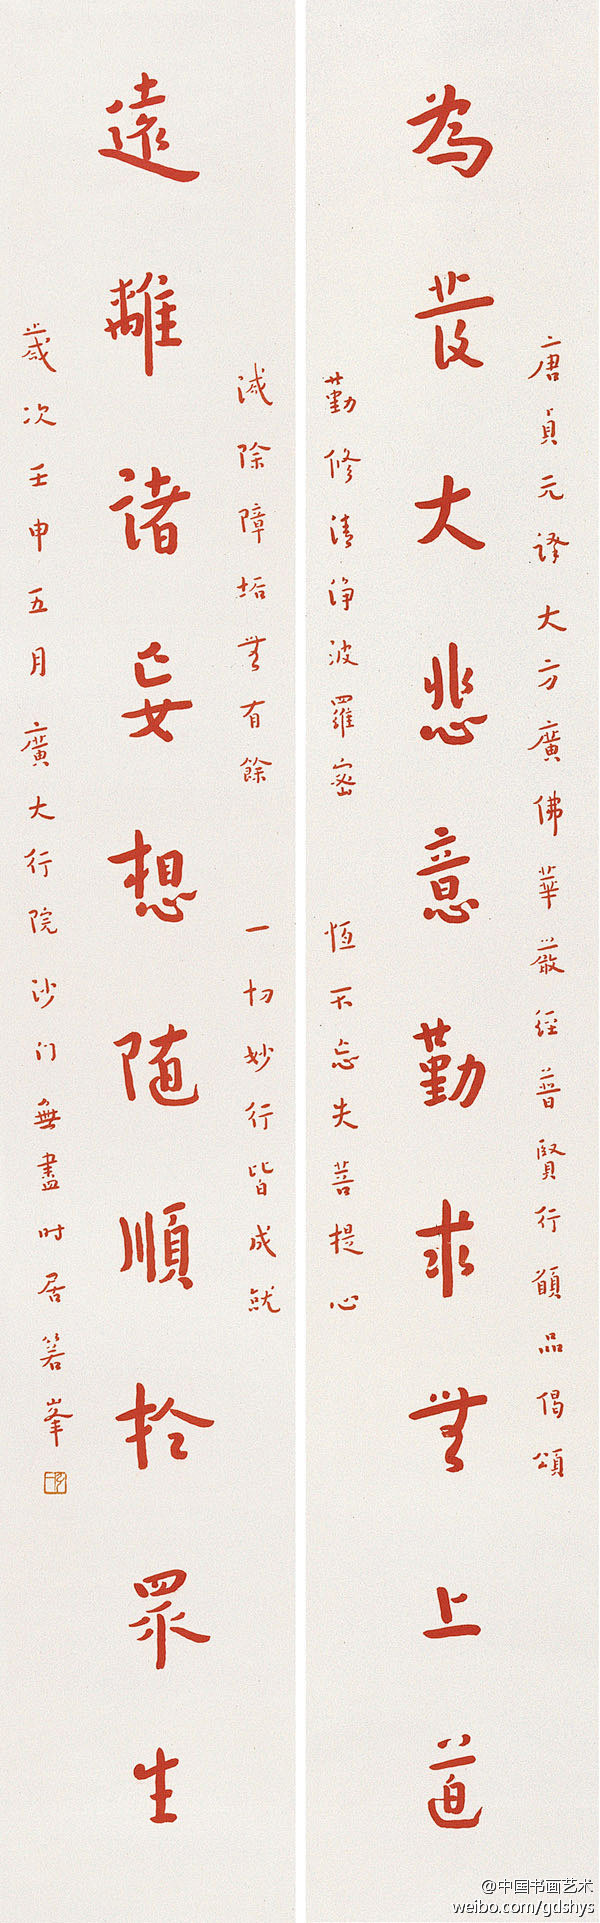 唐貞元譯大方廣佛華嚴經普賢行願品偈頌
為發大悲意勤求無上道
勤修清淨波羅密 恆不忘失菩提心
滅除障垢無有餘 一切妙行皆成就
遠離諸妄想随順於眾生
歲次壬申五月廣大行院沙门無盡时居箬峯
@中国书画艺术
weibo.com/gdshys